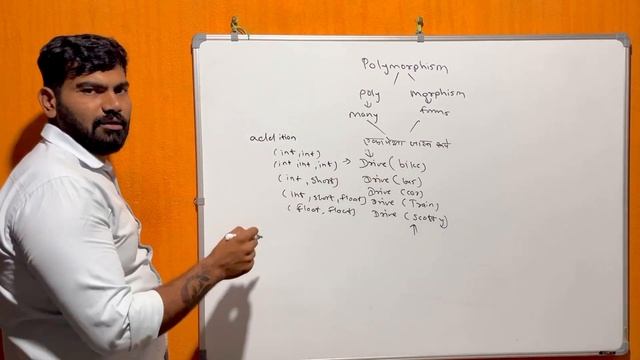 Polymorphism
poly morphism
many forms
addition
(int, int)
(int, int, int) → Drive (bike)
(int, short) Drive (bus)
(int, short, float) Drive (car)
Drive (Train)
(float, float) Drive (scotty)